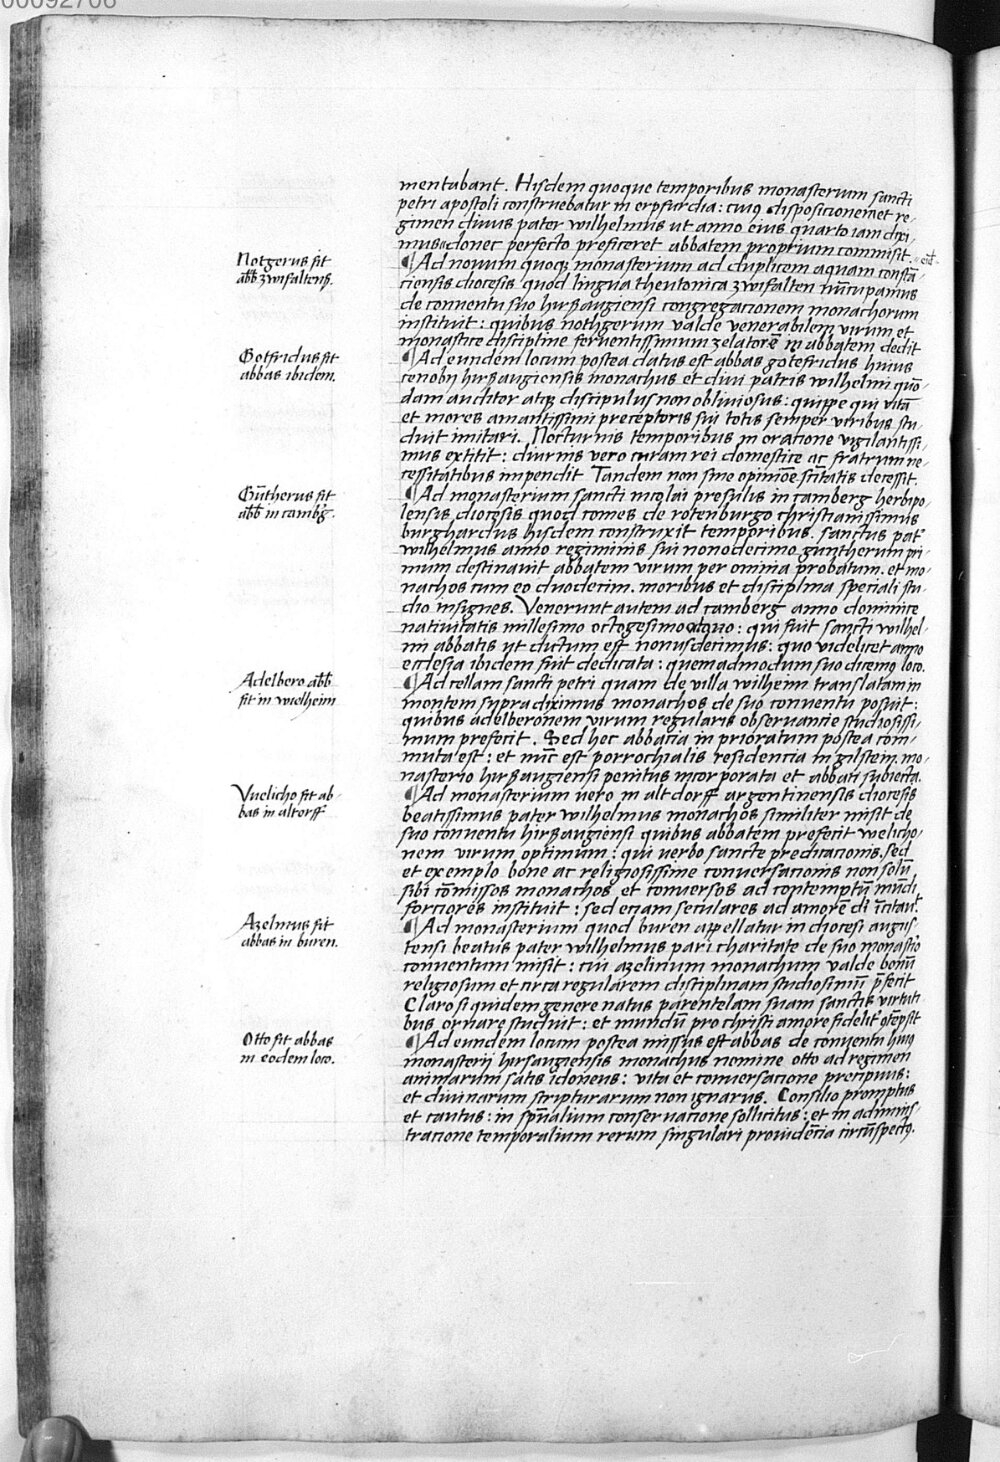 00092706
mentabant. Hisdem quoque temporibus monasterium sancti
petri apostoli construebatur in erpfurdia: cuiꝯ disposicionem et re-
gimen diuus pater wilhelmus ut anno eius quarto iam dixi-
mus donec perfecto preficeret abbatem proprium commisit.
Notgerus fit
abb̄ zwifaltenß.
¶ Ad nouum quoqꝫ monasterium ad duplicem aquam constā-
ciensis diocesis quod lingua theutonica zwifalten nūcupamus
de conuentu suo hirßaugiensi congregacionem monachorum
instituit: quibus nothgerum valde venerabilem virum et
monastice discipline feruentissimum zelatorē in abbatem dedit
Gotfridus fit
abbas ibidem.
¶ Ad eundem locum postea datus est abbas gotefridus huius
cenobij hirßaugiensis monachus et diui patris wilhelmi quō-
dam auditor atqꝫ discipulus non obliuiosus: quippe qui vitā
et mores amantissimi preceptoris sui totis semper viribus stu-
duit imitari. Nocturnis temporibus in oratione vigilantissi-
mus extitit: diurnis vero curam rei domestice ac fratrum ne-
cessitatibus impendit Tandem non sine opinione sc̄titatis decessit.
Gūtherus fit
abb̄ in cambg̅.
¶ Ad monasterium sancti nicolai presulis in camberg herbipo-
lensis diocesis quod comes de rotenburgo christianissimus
burghardus hisdem construxit temporibus. sanctus pat̄
wilhelmus anno regiminis sui nonodecimo guntherum pri-
mum destinauit abbatem virum per omnia probatum. et mo-
nachos cum eo duodecim. moribus et disciplina speciali stu-
dio insignes. Venerunt autem ad camberg anno dominice
natiuitatis millesimo octogesimo octauo: qui fuit sancti wilhel-
mi abbatis ut dictum est nonusdecimus: quo videlicet anno
ecclesia ibidem fuit dedicata: quemadmodum suo dicemꝯ loco.
Adelbero abb̄
fit in wielheim
¶ Ad cellam sancti petri quam de villa wilheim translatam in
montem supra diximus monachos de suo conuentu posuit:
quibus adelberonem virum regularis obseruantie studiosissi-
mum prefecit. Sed hec abbacia in prioratum postea com-
mutata est: et nūc est porrochialis residencia in gilstein. mo-
nasterio hirßaugiensi penitus incorporata et abbati subiecta.
Vuelicho fit ab-
bas in altorff
¶ Ad monasterium vero in altdorff argentinensis diocesis
beatissimus pater wilhelmus monachos similiter misit de
suo conuentu hirßaugiensi quibus abbatem prefecit welicho-
nem virum optimum: qui verbo sancte predicacionis. sed
et exemplo bone ac religiosissime conuersacionis non solū
sibi cōmissos monachos et conuersos ad contemptū mūdi
forciores instituit: sed eciam seculares ad amorē dī īcitaut̄.
Azelinus fit
abbas in buren.
¶ Ad monasterium quod buren appellatur in diocesi augus-
tensi beatus pater wilhelmus pari charitate de suo monastio
conuentum misit: cui azelinum monachum valde bonū
religiosum et circa regularem disciplinam studiosimū p̄fecit
Claro si quidem genere natus parentelam suam sanctis virtuti-
bus ornare studuit: et mundū pro christi amore fidelit̄ ꝯtēpsit
Otto fit abbas
in eodem loco.
¶ Ad eundem locum postea missus est abbas de conuentu huiꝯ
monasterij hirsaugiensis monachus nomine otto ad regimen
animarum satis idoneus: vita et conuersacione precipuus:
et diuinarum scripturarum non ignarus. Consilio promptus
et cautus: in spūalium conseruacione sollicitus: et in adminis-
tracione temporalium rerum singulari prouidēcia circūspectꝯ.